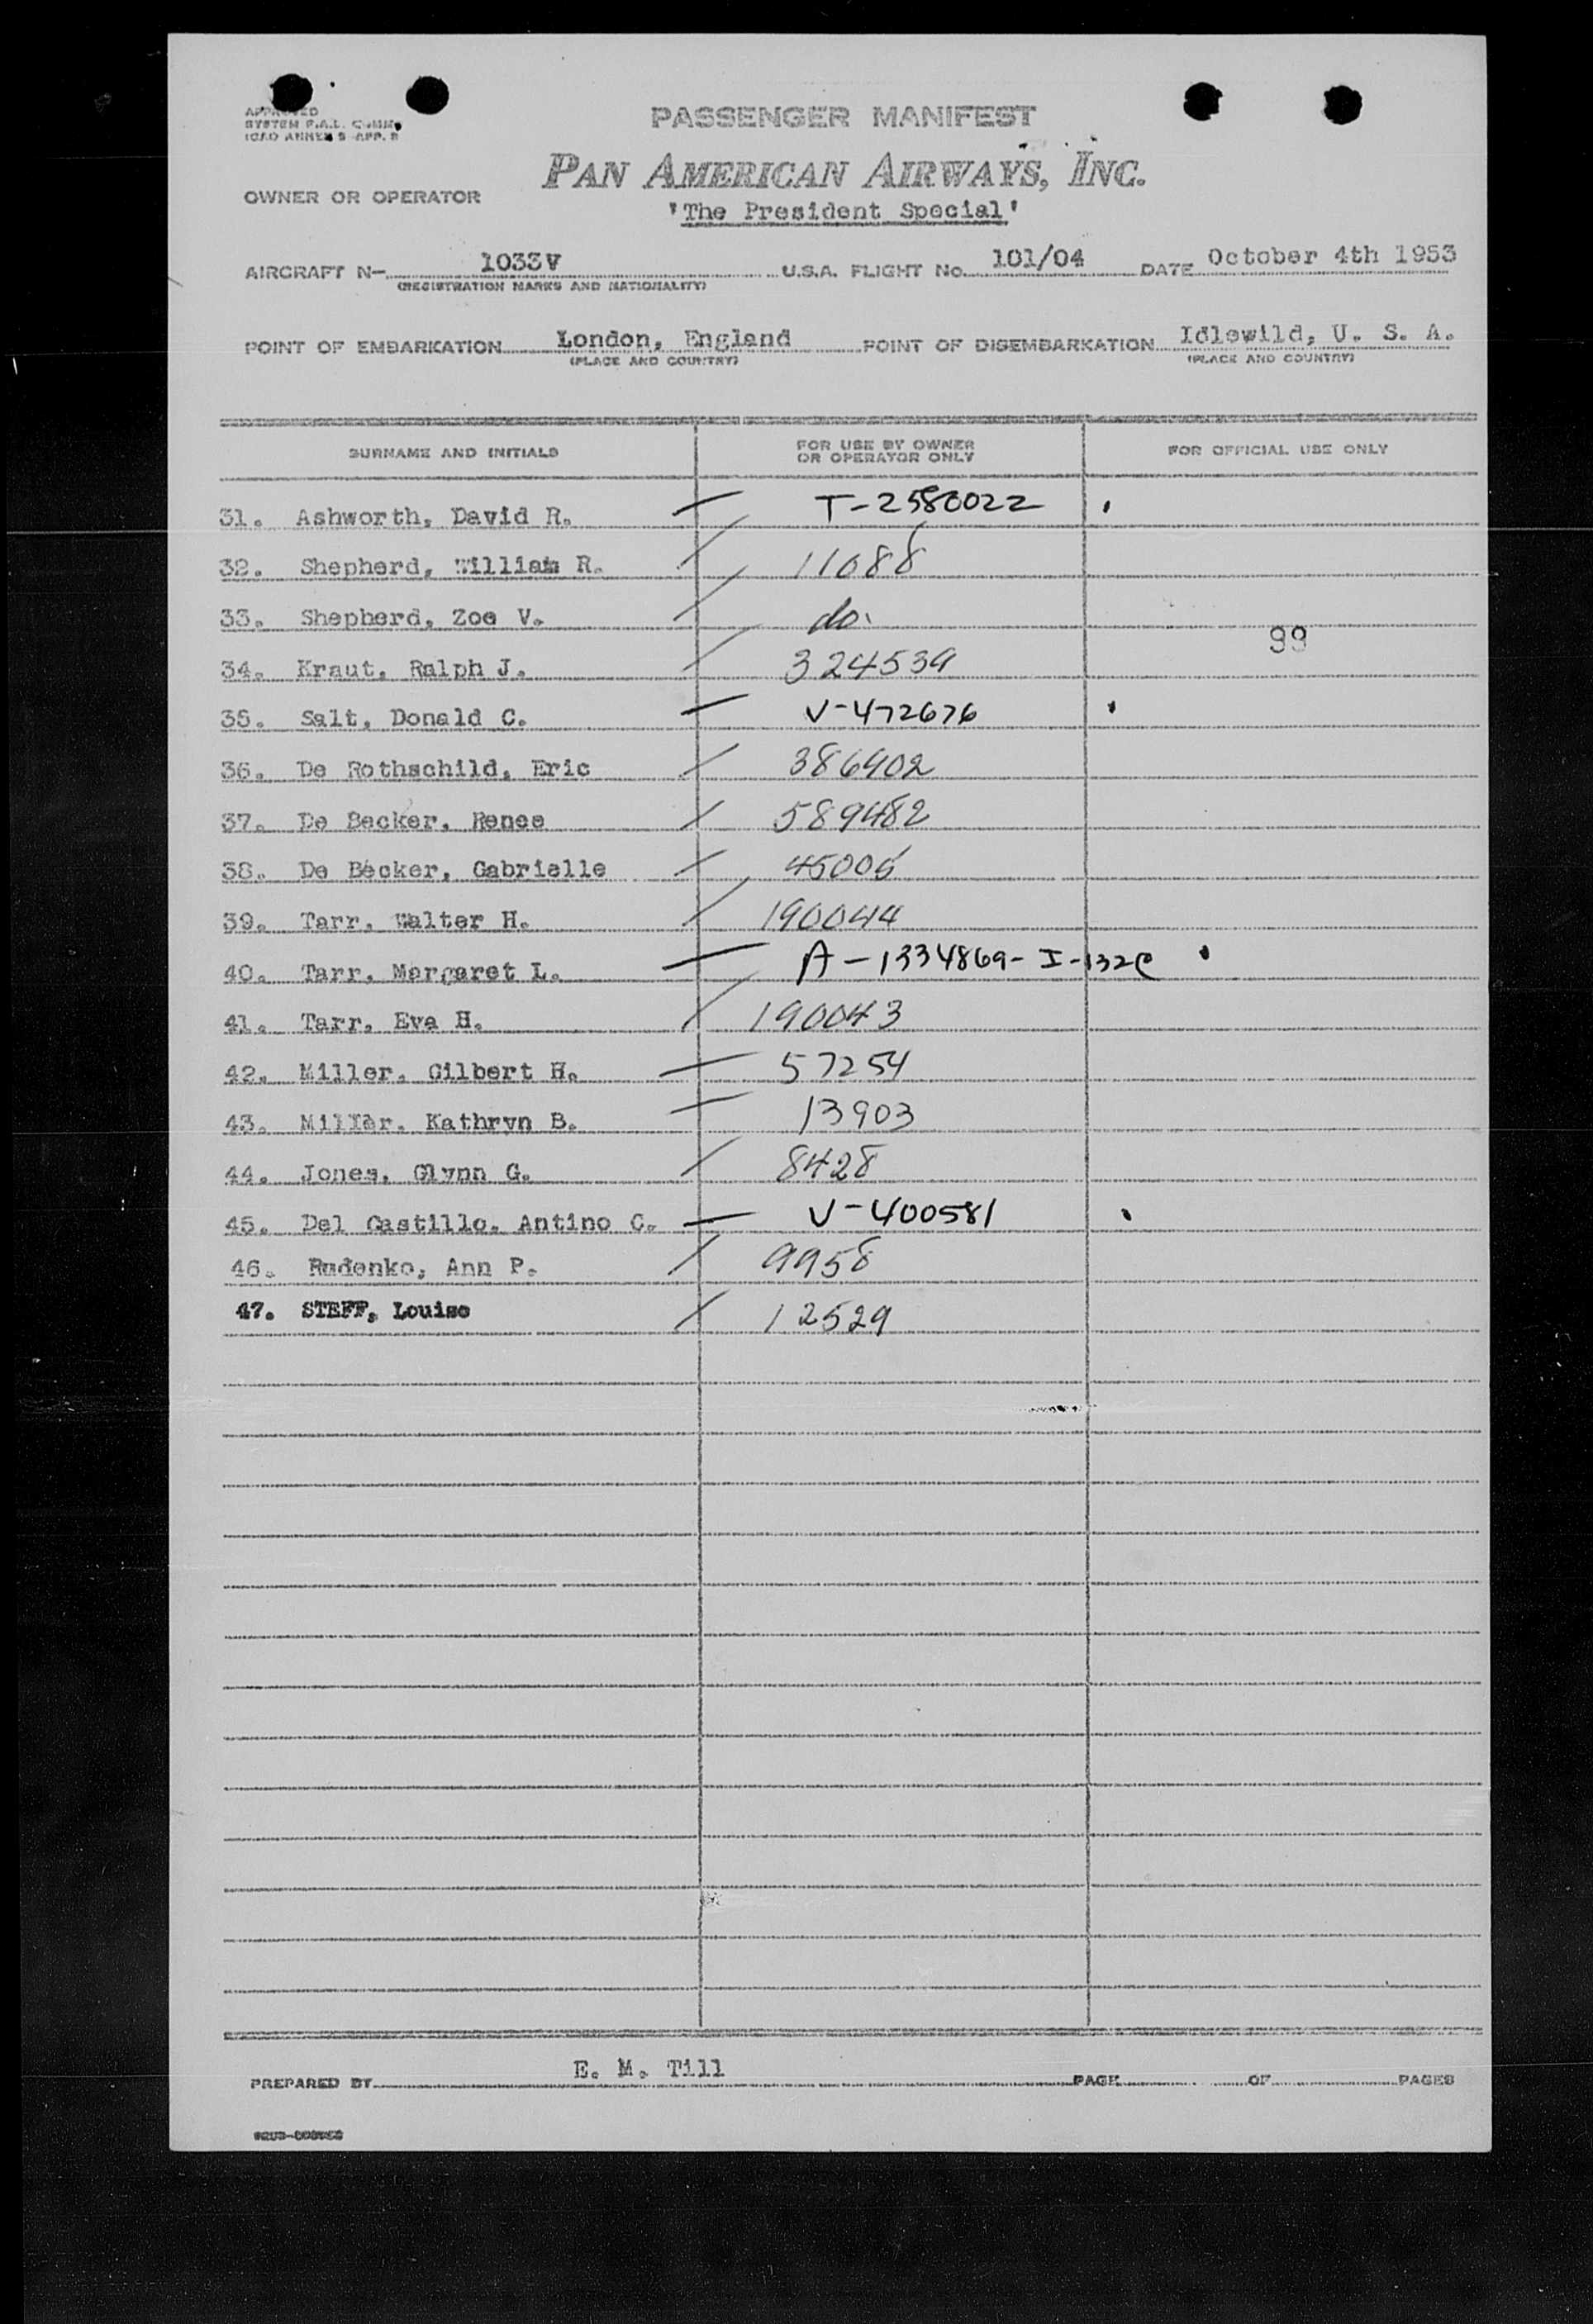 APPROVED
SYSTEM F.A.L. COMM.
ICAO ANNEX 9-APP. 8
PASSENGER MANIFEST
OWNER OR OPERATOR PAN AMERICAN AIRWAYS, INC.
'The President Special'
AIRCRAFT N- 1033V U.S.A. FLIGHT No. 101/04 DATE October 4th 1953
(REGISTRATION MARKS AND NATIONALITY)
POINT OF EMBARKATION London, England POINT OF DISEMBARKATION Idlewild, U. S. A.
(PLACE AND COUNTRY) (PLACE AND COUNTRY)
SURNAME AND INITIALS FOR USE BY OWNER OR OPERATOR ONLY FOR OFFICIAL USE ONLY
31. Ashworth, David R. T-2580022
32. Shepherd, William R. 11088
33. Shepherd, Zoe V. do.
99
34. Kraut, Ralph J. 324539
35. Salt, Donald C. V-472676
36. De Rothschild, Eric 386902
37. De Becker, Renee 589482
38. De Becker, Gabrielle 45006
39. Tarr, Walter H. 190044
40. Tarr, Margaret L. A-1334869-I-132C
41. Tarr, Eva H. 190043
42. Miller, Gilbert H. 57254
43. Miller, Kathryn B. 13903
44. Jones, Glynn G. 8428
45. Del Castillo, Antino C. V-400581
46. Rudenko, Ann P. 9958
47. STEFF, Louise 12529
PREPARED BY E. M. Till PAGE OF PAGES